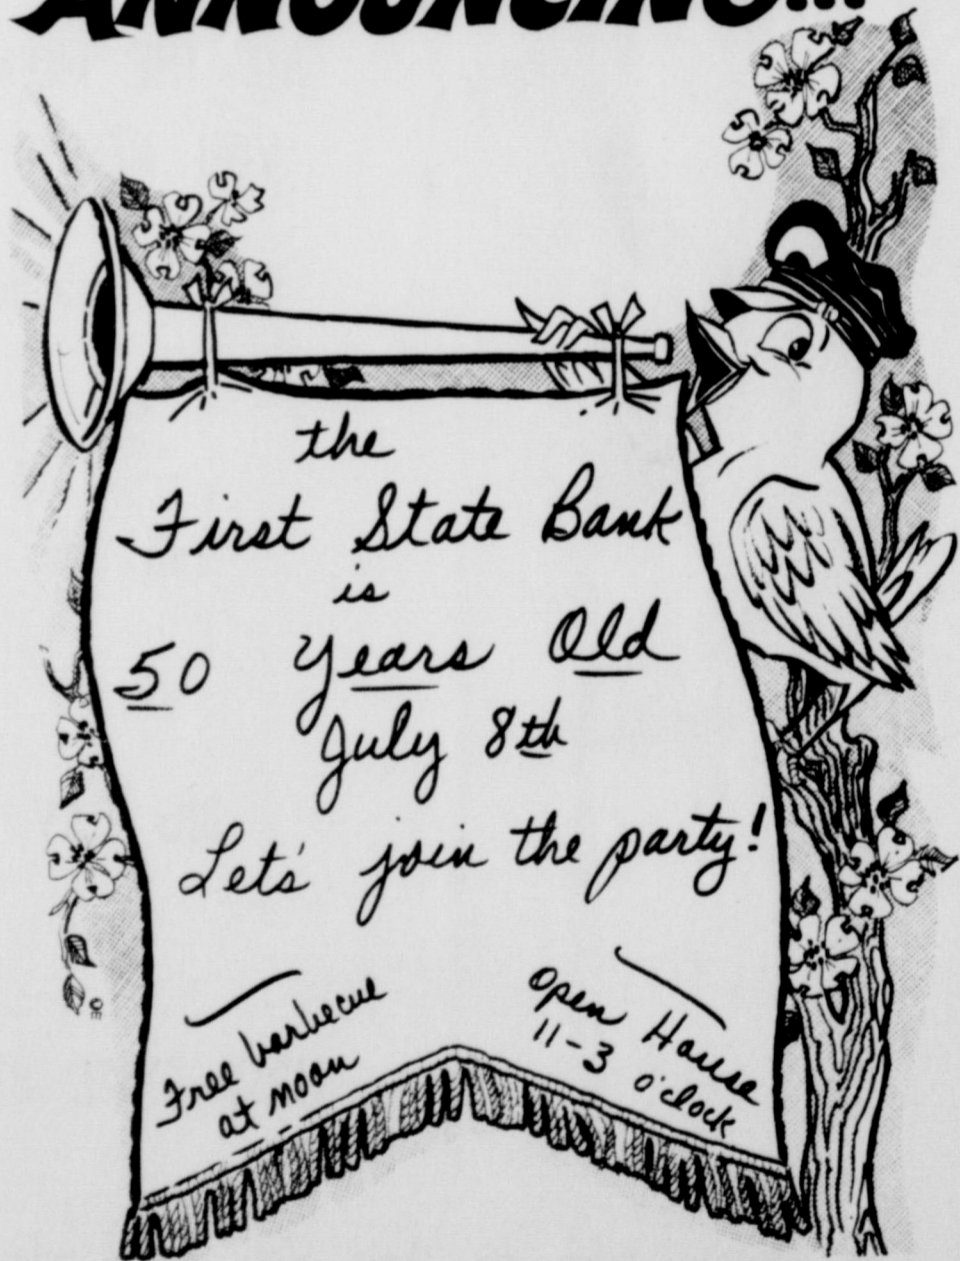 ANNOUNCING...
the
First State Bank
is
50 Years Old
July 8th
Let's join the party!
Free barbecue
at noon
Open House
11-3 o'clock